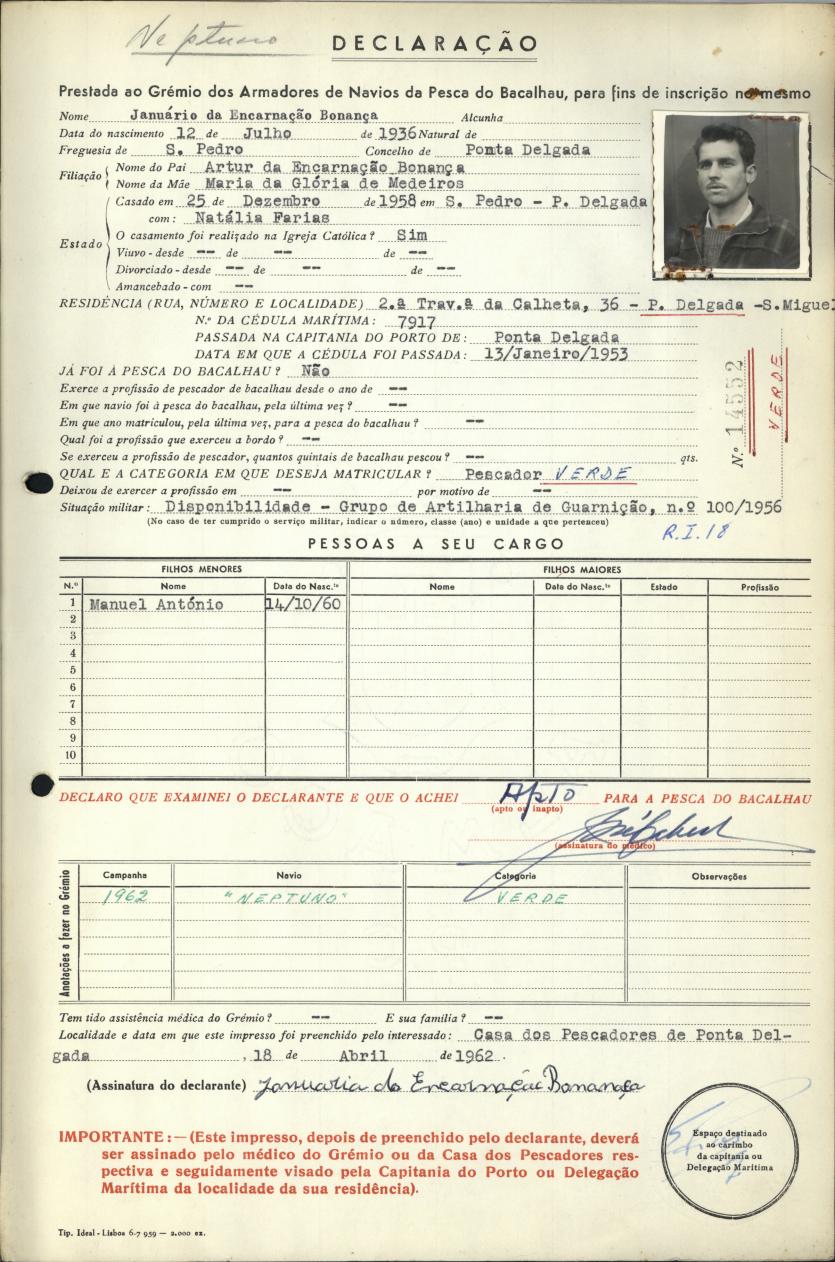 Neptuno
DECLARAÇÃO
Prestada ao Grémio dos Armadores de Navios da Pesca do Bacalhau, para fins de inscrição no mesmo
Nome Januário da Encarnação Bonança Alcunha
Data do nascimento 12 de Julho de 1936 Natural de
Freguesia de S. Pedro Concelho de Ponta Delgada
Filiação
Nome do Pai Artur da Encarnação Bonança
Nome da Mãe Maria da Glória de Medeiros
Estado
Casado em 25 de Dezembro de 1958 em S. Pedro - P. Delgada
com: Natália Farias
O casamento foi realizado na Igreja Católica? Sim
Viuvo - desde -- de -- de --
Divorciado - desde -- de -- de --
Amancebado - com --
RESIDÊNCIA (RUA, NÚMERO E LOCALIDADE) 2.ª Trav.ª da Calheta, 36 - P. Delgada -S.Miguel
N.º DA CÉDULA MARÍTIMA: 7917
PASSADA NA CAPITANIA DO PORTO DE: Ponta Delgada
DATA EM QUE A CÉDULA FOI PASSADA: 13/Janeiro/1953
JÁ FOI À PESCA DO BACALHAU? Não
Exerce a profissão de pescador de bacalhau desde o ano de --
Em que navio foi à pesca do bacalhau, pela última vez? --
Em que ano matriculou, pela última vez, para a pesca do bacalhau? --
Qual foi a profissão que exerceu a bordo? --
Se exerceu a profissão de pescador, quantos quintais de bacalhau pescou? -- qts.
N.º 14552
VERDE
QUAL E A CATEGORIA EM QUE DESEJA MATRICULAR? Pescador VERDE
Deixou de exercer a profissão em -- por motivo de --
Situação militar: Disponibilidade - Grupo de Artilharia de Guarnição, n.º 100/1956
(No caso de ter cumprido o serviço militar, indicar o número, classe (ano) e unidade a que pertenceu)
R.I.18
PESSOAS A SEU CARGO
FILHOS MENORES FILHOS MAIORES
N.º Nome Data do Nasc.to Nome Data do Nasc.to Estado Profissão
1 Manuel António 14/10/60
2
3
4
5
6
7
8
9
10
DECLARO QUE EXAMINEI O DECLARANTE E QUE O ACHEI Apto PARA A PESCA DO BACALHAU
(apto ou inapto)
(assinatura do médico)
Anotações a fazer no Grémio
Campanha Navio Categoria Observações
1962 "NEPTUNO" VERDE
Tem tido assistência médica do Grémio? -- E sua família? --
Localidade e data em que este impresso foi preenchido pelo interessado: Casa dos Pescadores de Ponta Del-
gada, 18 de Abril de 1962.
(Assinatura do declarante) Januaria da Encarnação Bonanaça
Espaço destinado
ao carimbo
da capitania ou
Delegação Marítima
IMPORTANTE:—(Este impresso, depois de preenchido pelo declarante, deverá
ser assinado pelo médico do Grémio ou da Casa dos Pescadores res-
pectiva e seguidamente visado pela Capitania do Porto ou Delegação
Marítima da localidade da sua residência).
Tip. Ideal - Lisboa 6-7 959 — 2.000 ex.